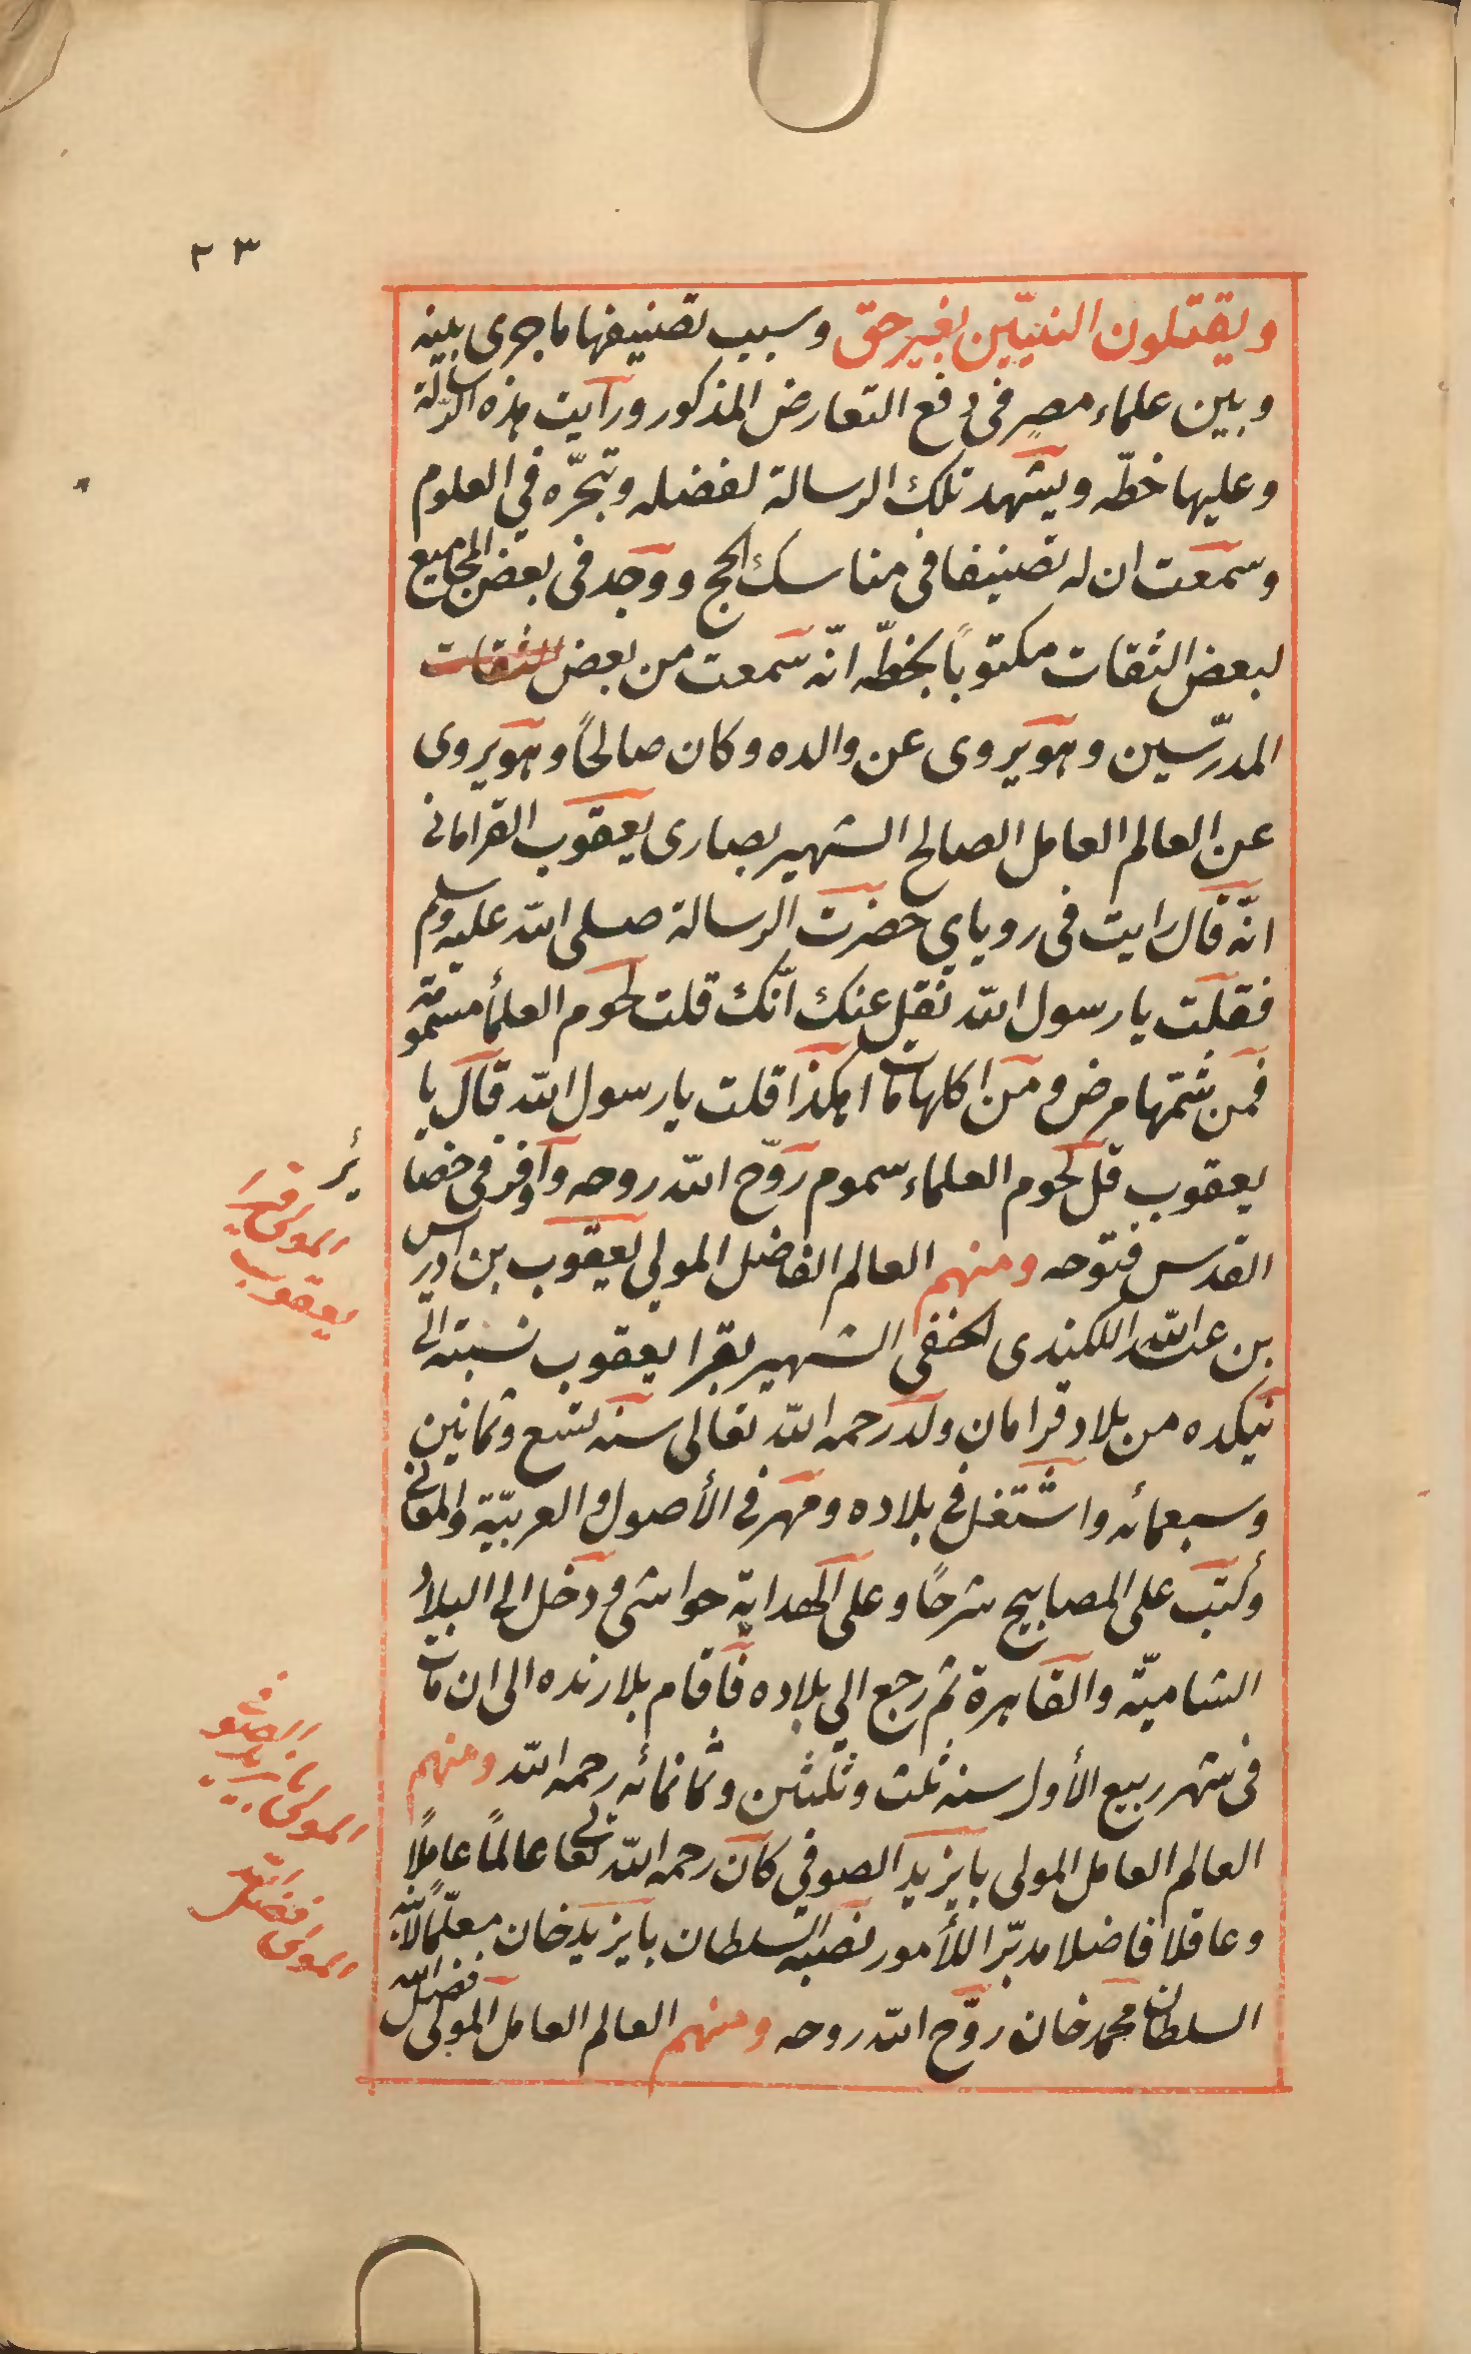 ٢٣
ويقتلون النبيّين بغير حق وسبب تصنيفها ما جرى بينه
وبين علماء مصر فى دفع التعارض المذكور ورأيت هذه الرسالة
وعليها خطّه ويشهد تلك الرسالة لفضله وتبحّره في العلوم
وسمعت ان له تصنيفا فى مناسك الحج ووجد فى بعض المجاميع
لبعض الثقات مكتوباً بخطّه انّه سمعت من بعض الثقات
المدرّسين وهو يروى عن والده وكان صالحاً وهو يروى
عن العالم العامل الصالح الشهير بصارى يعقوب القرامانى
انّه قال رايت فى روياي حضرت الرسالة صلى الله عليه وسلم
فقلت يا رسول الله نقل عنك انّك قلت لحوم العلمأ مسمومة
فمن شمّها مرض ومن اكلها مات اهكذا قلت يا رسول الله قال يا
يعقوب قل لحوم العلماء سموم روّح الله روحه وأوفر فى حضا
ئر
القدس فتوحه ومنهم العالم الفاضل المولى يعقوب بن ادريس
بن عبد الله اللكيندى الحنفى الشهير بقرا يعقوب نسبته الى
نيكده من بلاد قرامان ولد رحمه الله تعالى سنه تسع وثمانين
وسبعمائه واشتغل في بلاده ومهر في الأصول والعربيّة والمعانى
وكتب على المصابيح شرحًا وعلى الهداية حواشى ودخل الى البلاد
الشاميّة والقاهرة ثم رجع الي بلاده فأقام بلارنده الى ان مات
فى شهر ربيع الأول سنه ثلث وثلثين وثمانمائه رحمه الله ومنهم
العالم العامل المولى بايزيد الصوفي كان رحمه الله تعالى عالمًا عاملًا
وعاقلا فاضلا مدبّرا للأمور نصبه السلطان بايزيد خان معلّمًا لابنه
السلطان محمد خان روّح الله روحه ومنهم العالم العامل المولى فضل الله
المولى قرا
يعقوب
المولى بايزيد
الصوفى
المولى فضل الله